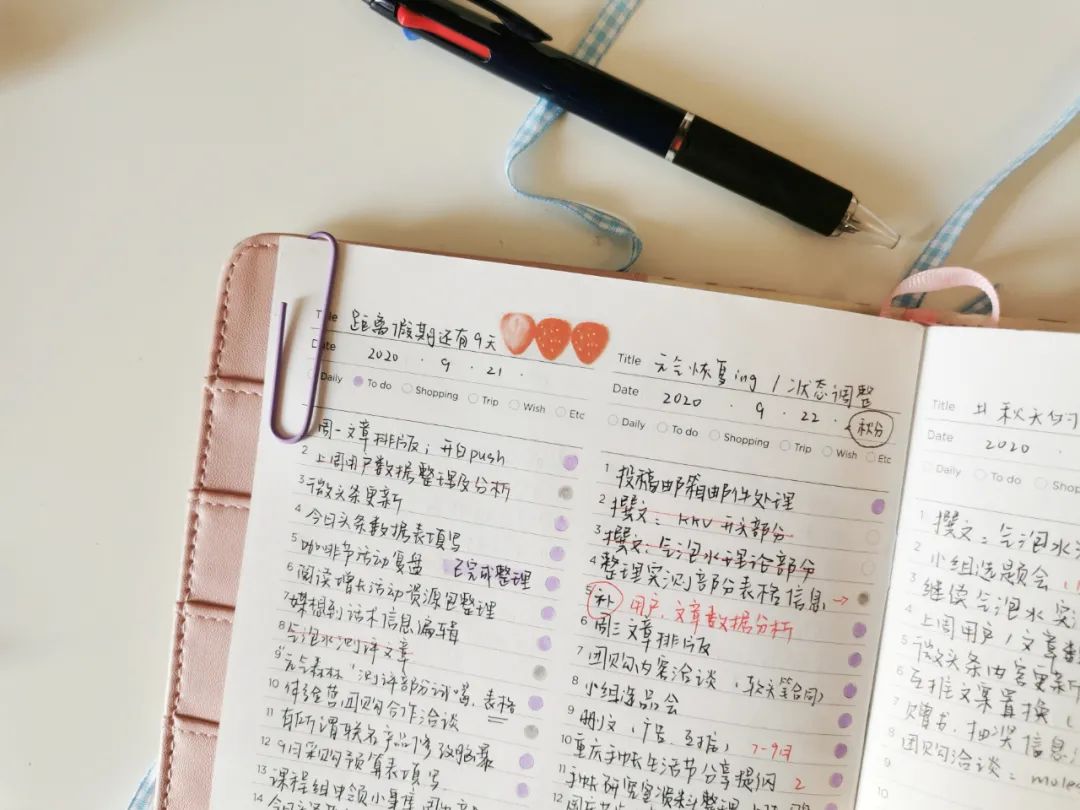 Title 距离假期还有9天
Date 2020 . 9 . 21 .
Daily To do Shopping Trip Wish Etc
周一文章排版；开白push
2 上周用户数据整理及分析
3 微头条更新
4 今日头条数据表填写
5 咖啡节活动复盘 已完成整理
6 阅读增长活动资源包整理
7 媒想到话术信息编辑
8 气泡水测评文章
9 元气森林测评部分试喝，表格
10 体验营团购合作洽谈
11 有所谓联名产品修改脑暴
12 9月采购预算表填写
13 课程组申领小量度
14 今日
Title 元气恢复ing / 状态调整
Date 2020 . 9 . 22 . 秋分
Daily To do Shopping Trip Wish Etc
1 投稿邮箱邮件处理
2 撰文：KKV开头部分
3 撰文：气泡水理论部分
4 整理实测部分表格信息 →
5 补 用户、文章数据分析
6 周三文章排版
7 团购内容洽谈（软文签合同）
8 小组选品会
9 删文（广告、互推） 7-9月
10 重庆手帐生活节分享提纲 2
11 手帐研究室
12
Title 秋天
Date 2020 .
Daily To do Shopp
1 撰文：气泡水
2 小组选题会
3 继续气泡水实
4 上周用户/文章数
5 微头条内容更新
6 互推文案置换
7 赠书、抽奖信息
8 团购洽谈：mole
9
10